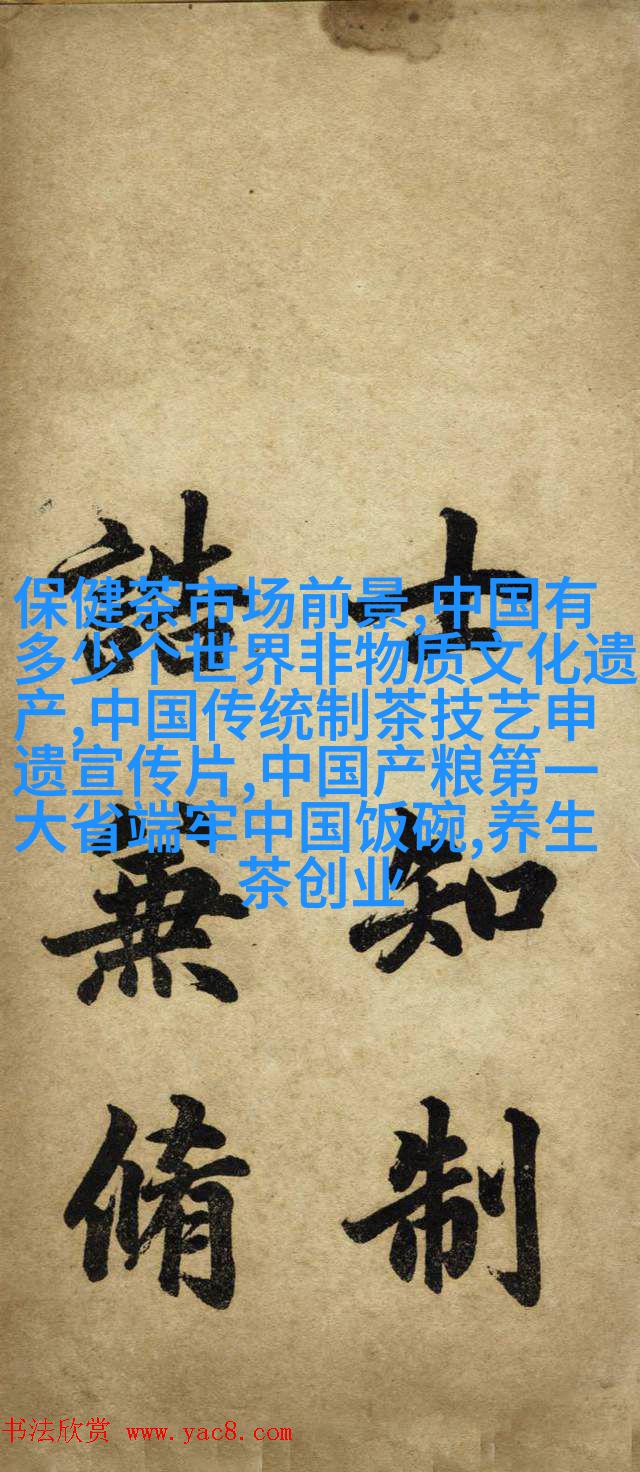 士知制
誥兼脩
保健茶市场前景,中国有
多少个世界非物质文化遗
产,中国传统制茶技艺申
遗宣传片,中国产粮第一
大省端牢中国饭碗,养生
茶创业
书法欣赏 www.yac8.com